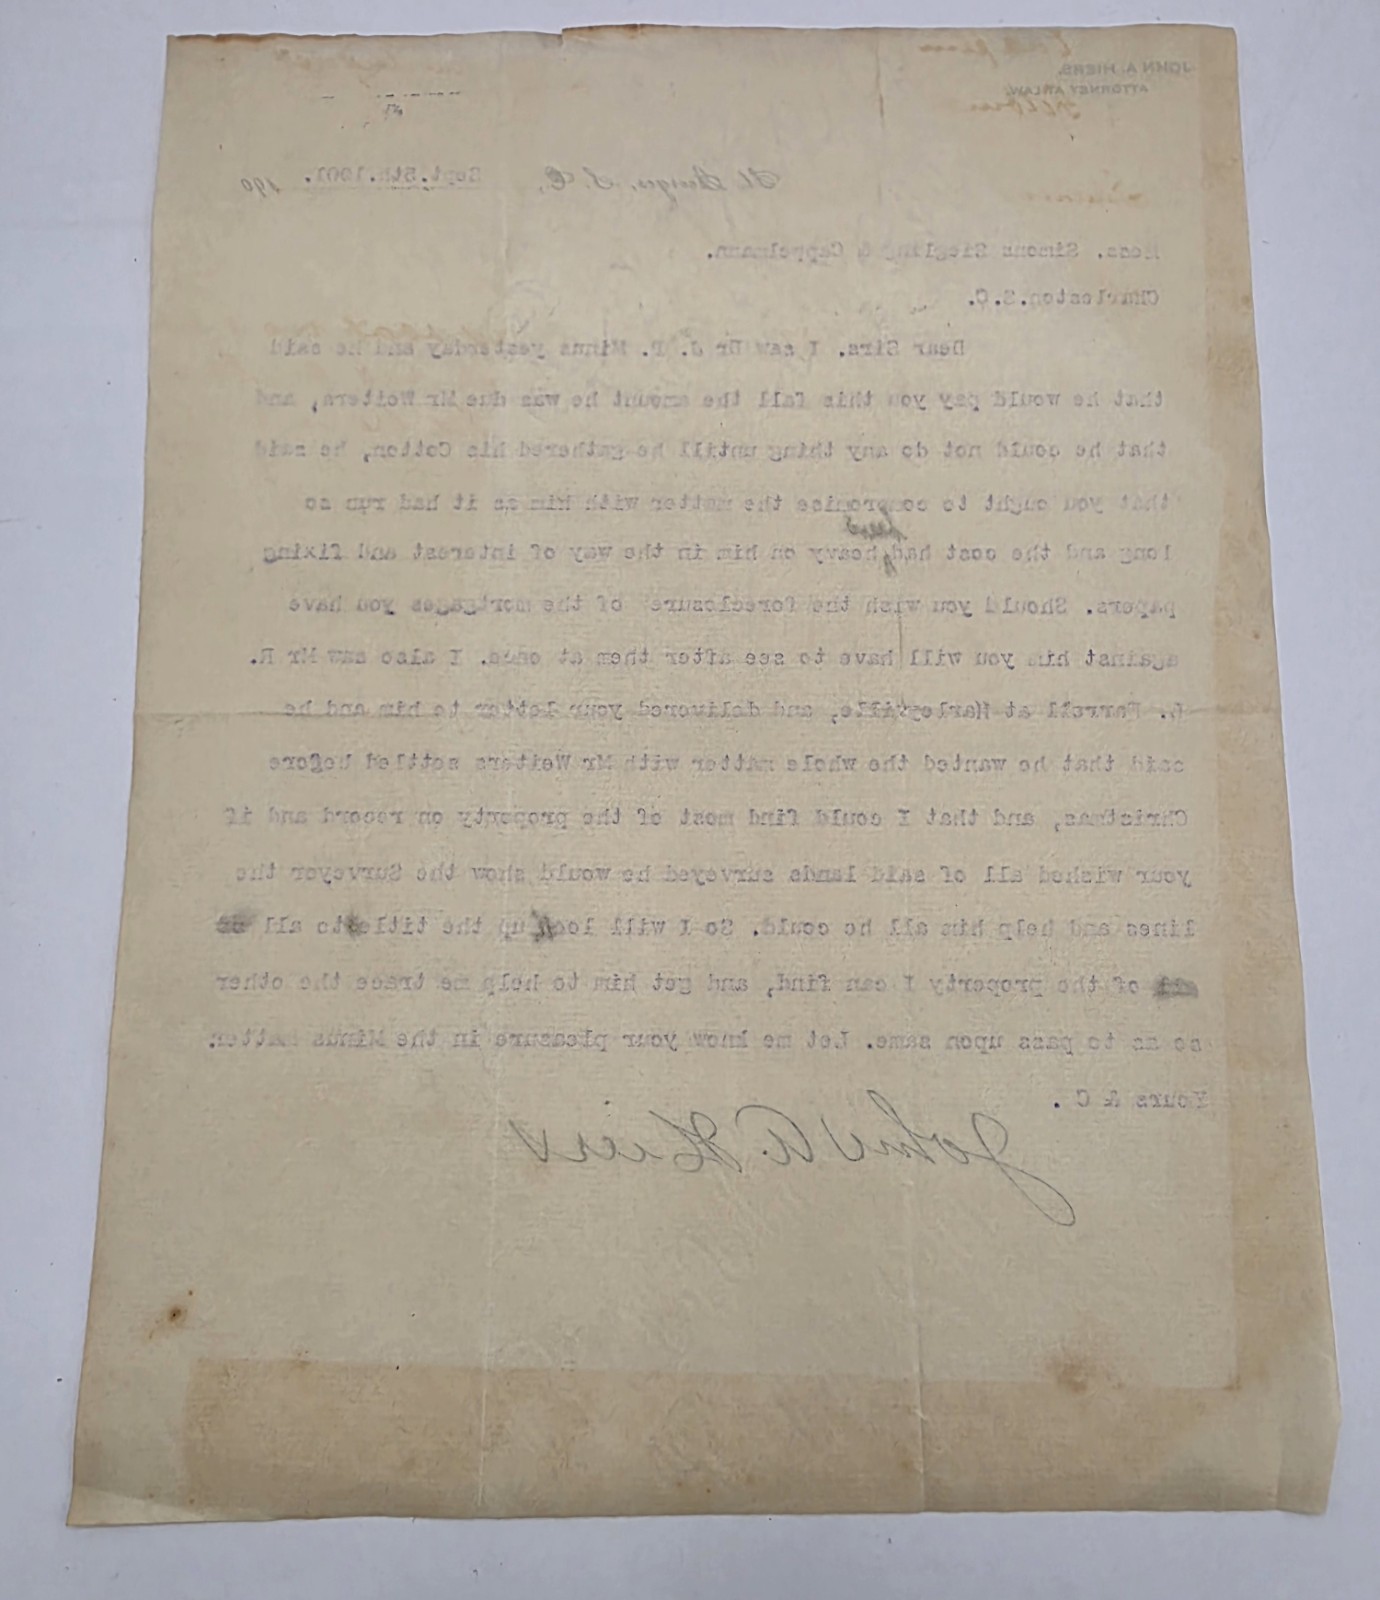 JOHN A. HIERS,
ATTORNEY AT LAW,
St. George, S. C., Sept. 5th. 1901. 190
Mess. Simons Siegling & Cappelmann.
Charleston.S.C.
Dear Sirs. I saw Dr J. P. Minus yesterday and he said
that he would pay you this fall the amount he was due Mr Weiters, and
that he could not do any thing untill he gathered his Cotton, he said
that you ought to compromise the matter with him as it had run so
long and the cost had been heavy on him in the way of interest and fixing
papers. Should you wish the foreclosure of the mortgages you have
against him you will have to see after them at once. I also saw Mr R.
Ferrell at Harleyville, and delivered your letter to him and he
said that he wanted the whole matter with Mr Weiters settled before
Christmas, and that I could find most of the property on record and if
your wished all of said lands surveyed he would show the Surveyor the
lines and help him all he could. So I will look up the titles to all
of the property I can find, and get him to help me trace the other
so as to pass upon same. Let me know your pleasure in the Minus matter.
Yours & C .
John A. Hiers